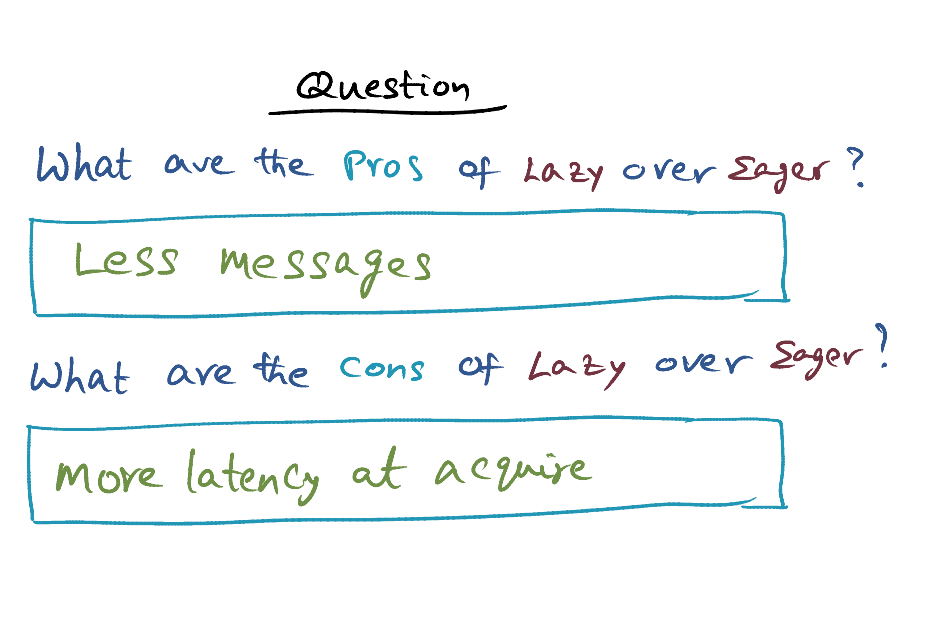 Question
What are the Pros of Lazy over Eager?
Less messages
What are the Cons of Lazy over Eager?
More latency at acquire